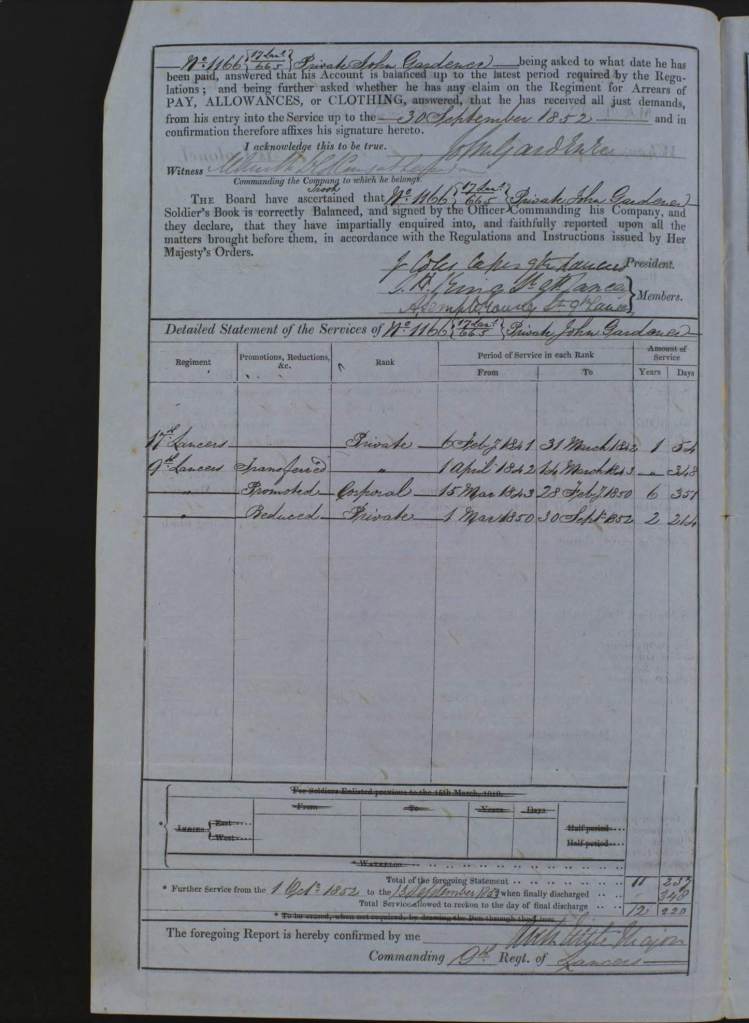 No. 1166 {17 Lanrs / 665} Private John Gardener being asked to what date he has
been paid, answered that his Account is balanced up to the latest period required by the Regu-
lations; and being further asked whether he has any claim on the Regiment for Arrears of
PAY, ALLOWANCES, or CLOTHING, answered, that he has received all just demands,
from his entry into the Service up to the 30 September 1852 and in
confirmation therefore affixes his signature hereto.
I acknowledge this to be true. John Gardener
Witness
Commanding the Company to which he belongs.
THE Board have ascertained that No. 1166 {17 Lanrs / 665} Private John Gardener
Soldier's Book is correctly Balanced, and signed by the Officer Commanding his Company, and
Troop
they declare, that they have impartially enquired into, and faithfully reported upon all the
matters brought before them, in accordance with the Regulations and Instructions issued by Her
Majesty's Orders.
J Coles Capt 9th Lancers President.
King Lt 9th Lancers
Members.
Lt 9th Lancers
Detailed Statement of the Services of No. 1166 {17 Lanrs / 665} Private John Gardener
Regiment Promotions, Reductions, &c. Rank Period of Service in each Rank Amount of Service
From To Years Days
17th Lancers Private 6 Feby 1841 31 March 1842 1 54
9th Lancers Transferred " 1 April 1842 14 March 1843 " 348
" Promoted Corporal 15 Mar 1843 28 Feby 1850 6 351
" Reduced Private 1 Mar 1850 30 Sept 1852 2 214
For Soldiers Enlisted previous to the 15th March, 1810.
From To Years Days
* INDIES East Half period
West Half period
* WATERLOO
Total of the foregoing Statement 11 237
* Further Service from the 1 Octr 1852 to the 13 September 1853 when finally discharged " 348
Total Service allowed to reckon to the day of final discharge 12 220
* To be erased, when not required, by drawing the Pen through the
The foregoing Report is hereby confirmed by me Major
Commanding 9th Regt. of Lancers